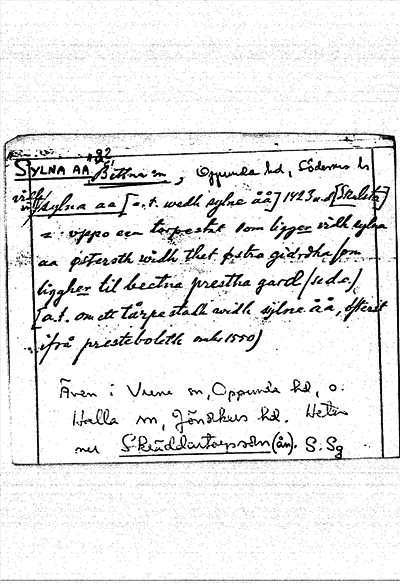 SYLNA AA, Bettna sn, Oppunda hd, Södermanl. ls
widh sylna aa [a.t. wedh sylne åå] 1423 u.d [Skulsta]
= uppo een torpestat som ligger vidh sylna
aa østeroth widh thet østra gidrdha som
liggher til bectna prestha gard (sede.)
[a.t. om ett tårpestadh widh sylne åå, østerst
ifrå prestebolith omkr 1550]
Även i Vrena sn, Oppunda hd, o.
Halla sn, Jönåkers hd. Heter
nu Skräddartorpsån (ån). S. Sg